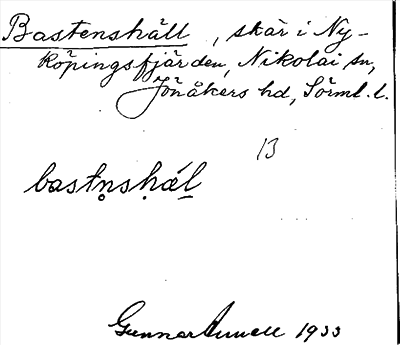 Bastenshäll, skär i Ny-
köpingsfjärden, Nikolai sn,
Jönåkers hd, Sörml. l.
13
bastn̥sḥál̲
Gunnar 1933